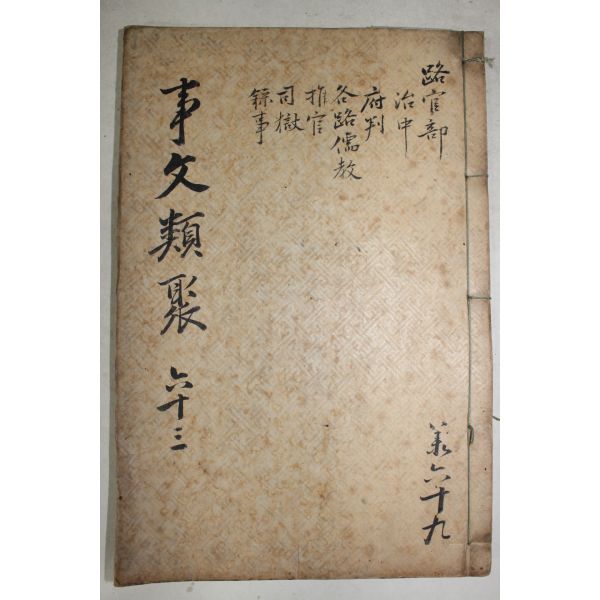 路官部
治中
府判
各路儒教
推官
司獄
錄事
事文類聚 六十三
六十九